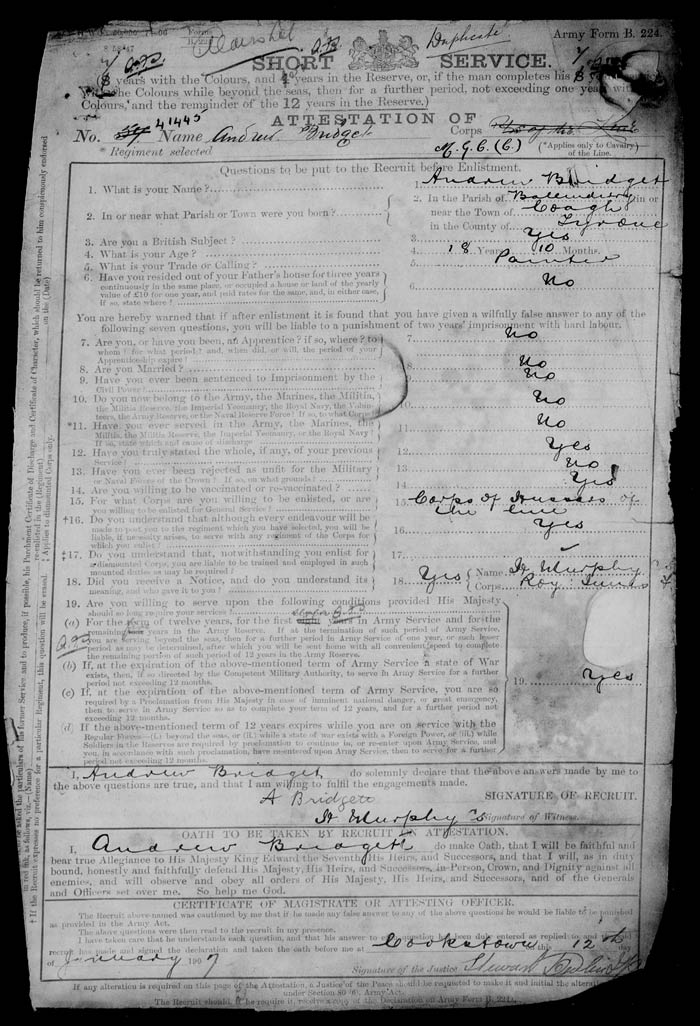 Duplicate
Army Form B. 224.
SHORT SERVICE.
years with the Colours, and years in the Reserve, or, if the man completes his
the Colours while beyond the seas, then for a further period, not exceeding one year with
Colours, and the remainder of the 12 years in the Reserve.)
ATTESTATION OF
No. 41445 Name Andrew Bridget Corps
Regiment selected M.G.C. (C) (*Applies only to Cavalry) of the Line.
Questions to be put to the Recruit before Enlistment.
1. What is your Name? 1. Andrew Bridget
2. In or near what Parish or Town were you born? 2. In the Parish of in or
near the Town of Coagh
in the County of Tyrone
3. Are you a British Subject? 3. Yes
4. What is your Age? 4. 18 Years 10 Months.
5. What is your Trade or Calling? 5. Painter
6. Have you resided out of your Father's house for three years 6. No
continuously in the same place, or occupied a house or land of the yearly
value of £10 for one year, and paid rates for the same, and, in either case,
if so, state where?
You are hereby warned that if after enlistment it is found that you have given a wilfully false answer to any of the
following seven questions, you will be liable to a punishment of two years' imprisonment with hard labour.
7. Are you, or have you been, an Apprentice? if so, where? to 7. No
whom? for what period? and, when did, or will, the period of your
Apprenticeship expire?
8. Are you Married? 8. No
9. Have you ever been sentenced to Imprisonment by the No
Civil Power?
10. Do you now belong to the Army, the Marines, the Militia, No
the Militia Reserve, the Imperial Yeomanry, the Royal Navy, the Volun-
teers, the Army Reserve, or the Naval Reserve Force? If so, to what Corps?
*11. Have you ever served in the Army, the Marines, the No
Militia, the Militia Reserve, the Imperial Yeomanry, or the Royal Navy?
If so, state which and cause of discharge
12. Have you truly stated the whole, if any, of your previous 12. Yes
Service?
13. Have you ever been rejected as unfit for the Military 13. No
or Naval Forces of the Crown? If so, on what grounds?
14. Are you willing to be vaccinated or re-vaccinated? 14. Yes
15. For what Corps are you willing to be enlisted, or are 15. Corps of Hussars of
you willing to be enlisted for General Service? the Line
†16. Do you understand that although every endeavour will be 16. Yes
made to post you to the regiment which you have selected, you will be
liable, if necessity arises, to serve with any regiment of the Corps for
which you enlist?
‡17. Do you understand that, notwithstanding you enlist for 17.
a dismounted Corps, you are liable to be trained and employed in such
mounted duties as may be required?
18. Did you receive a Notice, and do you understand its 18. Yes Name Murphy
meaning, and who gave it to you? Corps Roy
19. Are you willing to serve upon the following conditions provided His Majesty
should so long require your services?
(a) For the term of twelve years, for the first seven years in Army Service and for the
remaining years in the Army Reserve. If at the termination of such period of Army Service
you are serving beyond the seas, then for a further period in Army Service of one year, or such lesser
period as may be determined, after which you will be sent home with all convenient speed to complete
the remaining portion of such period of 12 years in the Army Reserve.
(b) If, at the expiration of the above-mentioned term of Army Service a state of War
exists, then, if so directed by the Competent Military Authority, to serve in Army Service for a further
period not exceeding 12 months. 19. Yes
(c) If, at the expiration of the above-mentioned term of Army Service, you are so
required by a Proclamation from His Majesty in case of imminent national danger, or great emergency,
then to serve in Army Service so as to complete your term of 12 years, and for a further period not
exceeding 12 months.
(d) If the above-mentioned term of 12 years expires while you are on service with the
Regular Forces—(i.) beyond the seas, or (ii.) while a state of war exists with a Foreign Power, or (iii.) while
Soldiers in the Reserves are required by proclamation to continue in, or re-enter upon Army Service, and
you, in accordance with such proclamation, have re-entered upon Army Service, then to serve for a further
period not exceeding 12 months.
I, Andrew Bridget do solemnly declare that the above answers made by me to
the above questions are true, and that I am willing to fulfil the engagements made.
A Bridget SIGNATURE OF RECRUIT.
Murphy Signature of Witness.
OATH TO BE TAKEN BY RECRUIT ON ATTESTATION.
I, Andrew Bridgett do make Oath, that I will be faithful and
bear true Allegiance to His Majesty King Edward the Seventh, His Heirs, and Successors, and that I will, as in duty
bound, honestly and faithfully defend His Majesty, His Heirs, and Successors, in Person, Crown, and Dignity against all
enemies, and will observe and obey all orders of His Majesty, His Heirs, and Successors, and of the Generals
and Officers set over me. So help me God.
CERTIFICATE OF MAGISTRATE OR ATTESTING OFFICER.
The Recruit above-named was cautioned by me that if he made any false answer to any of the above questions he would be liable to be punished
as provided in the Army Act.
The above questions were then read to the recruit in my presence.
I have taken care that he understands each question, and that his answer to each question has been duly entered as replied to, and the said
recruit has made and signed the declaration and taken the oath before me at Cookstown on this 12th day
of January 1907
Signature of the Justice Stewart
If any alteration is required on this page of the Attestation, a Justice of the Peace should be requested to make it and initial the alteration
under Section 80 (6), Army Act.
The Recruit should, if he require it, receive a copy of the Declaration on Army Form B. 224A.